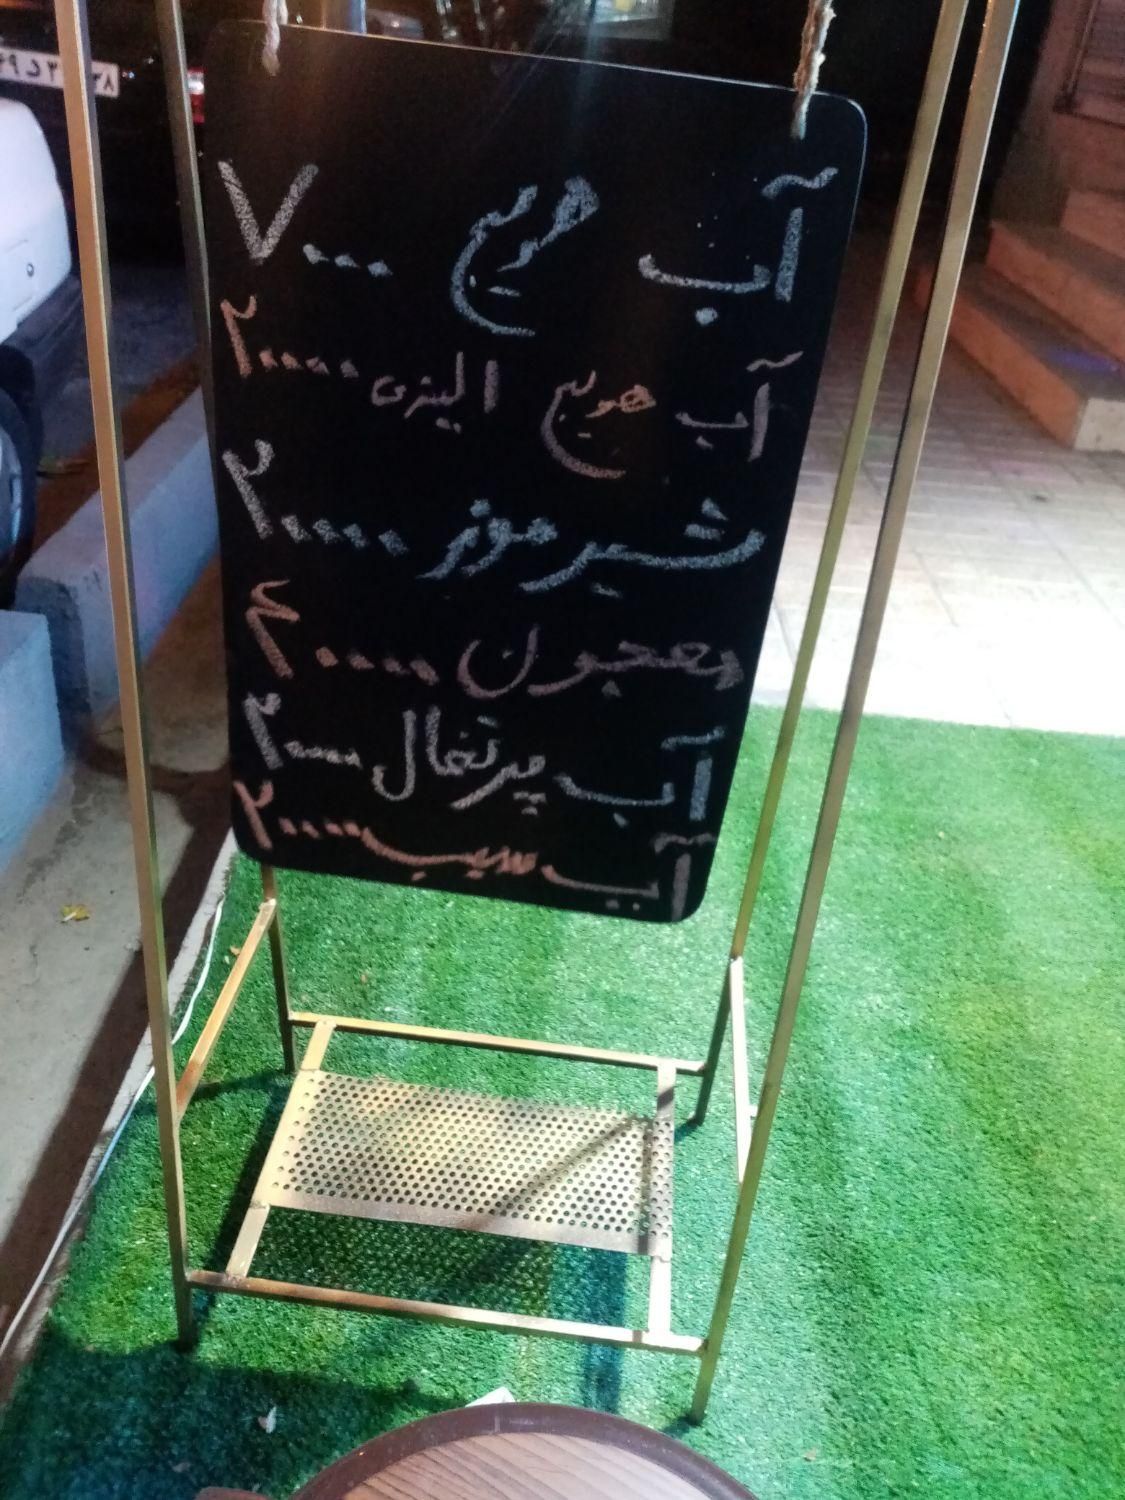 آب هویج ۷۰۰۰
آب هویج الینزی ۲۰۰۰۰
شیر موز ۲۰۰۰۰
معجون ۴۰۰۰۰
آب پرتغال ۳۰۰۰۰
آب سیب ۲۰۰۰۰